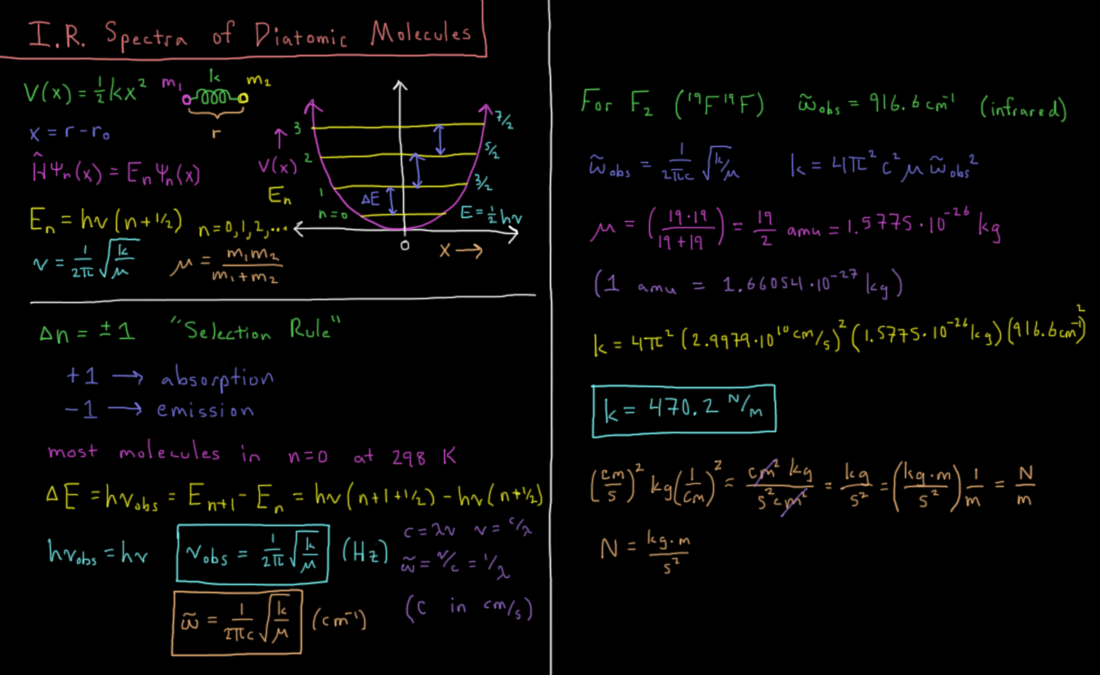 I.R. Spectra of Diatomic Molecules
V(x) = ½kx²
m₁ k m₂
r
x = r - r₀
Ĥψₙ(x) = Eₙψₙ(x)
Eₙ = hν(n+½) n=0,1,2,...
ν = 1/2π √k/μ μ = m₁m₂/m₁+m₂
V(x)
Eₙ
3 7/2
2 5/2
1 3/2
ΔE
n=0 E=½hν
0
x →
Δn = ±1 "Selection Rule"
+1 → absorption
-1 → emission
most molecules in n=0 at 298 K
ΔE = hν_obs = Eₙ₊₁ - Eₙ = hν(n+1+½) - hν(n+½)
hν_obs = hν
ν_obs = 1/2π √k/μ (Hz)
c = λν ν = c/λ
ω̃ = ν/c = 1/λ
(c in cm/s)
ω̃ = 1/2πc √k/μ (cm⁻¹)
For F₂ (¹⁹F¹⁹F) ω̃_obs = 916.6 cm⁻¹ (infrared)
ω̃_obs = 1/2πc √k/μ k = 4π²c²μω̃_obs²
μ = (19·19/19+19) = 19/2 amu = 1.5775·10⁻²⁶ kg
(1 amu = 1.66054·10⁻²⁷ kg)
k = 4π²(2.9979·10¹⁰ cm/s)²(1.5775·10⁻²⁶ kg)(916.6cm⁻¹)²
k = 470.2 N/m
(cm/s)² kg(1/cm)² = cm² kg/s²cm² = kg/s² = (kg·m/s²) 1/m = N/m
N = kg·m/s²